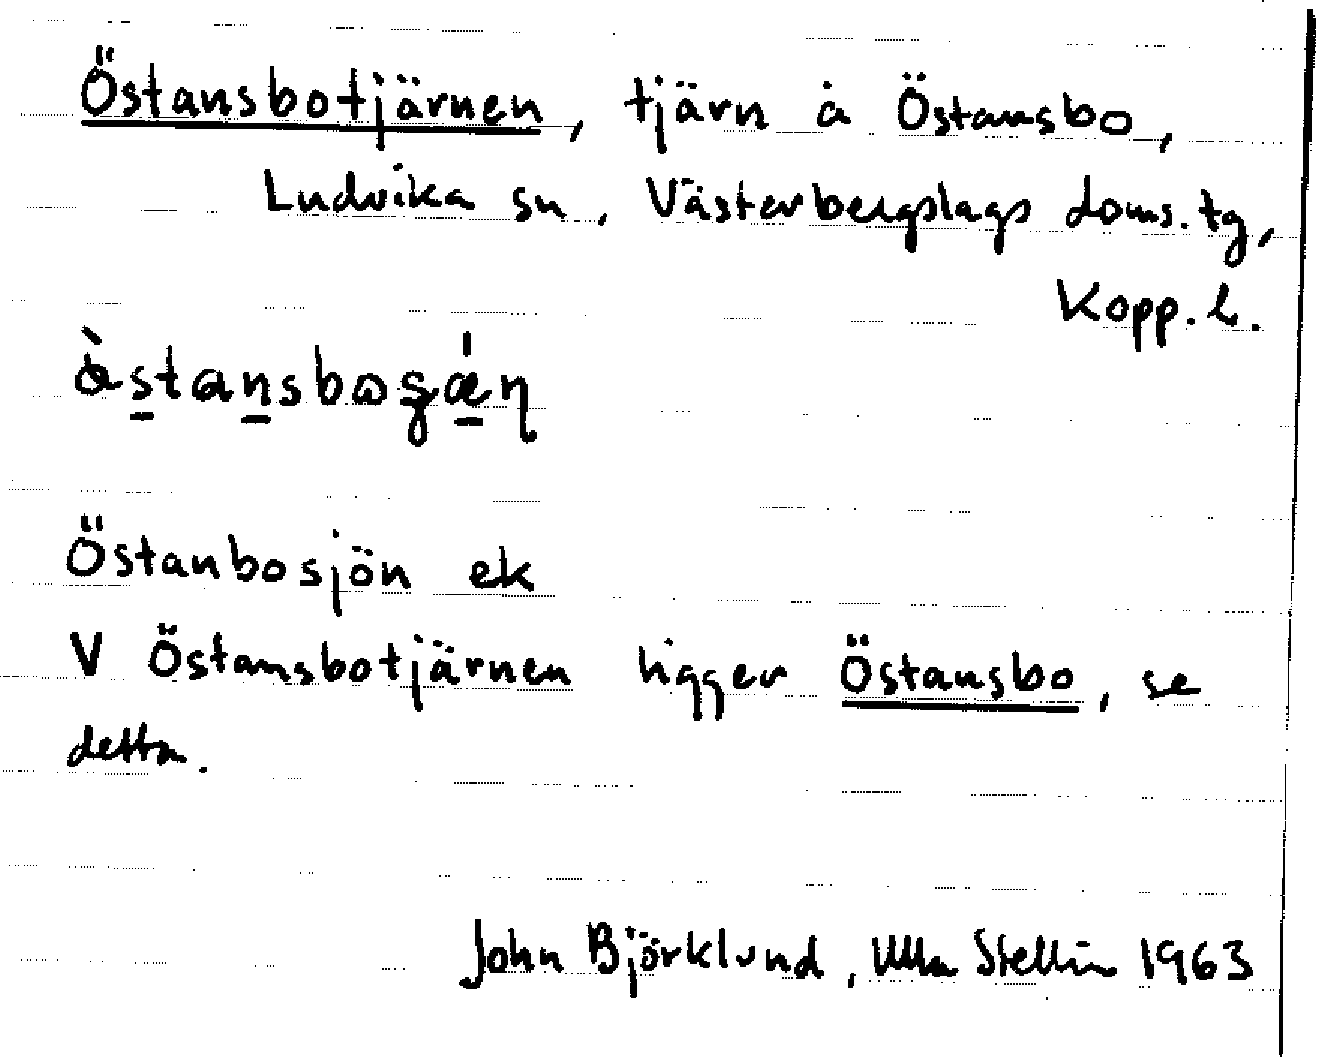 Östansbotjärnen, tjärn å Östansbo,
Ludvika sn, Västerbergslags doms.tg,
Kopp.l.
Östanbosjön ek
V Östansbotjärnen ligger Östansbo, se
detta.
John Björklund, Ulla Stellin 1963